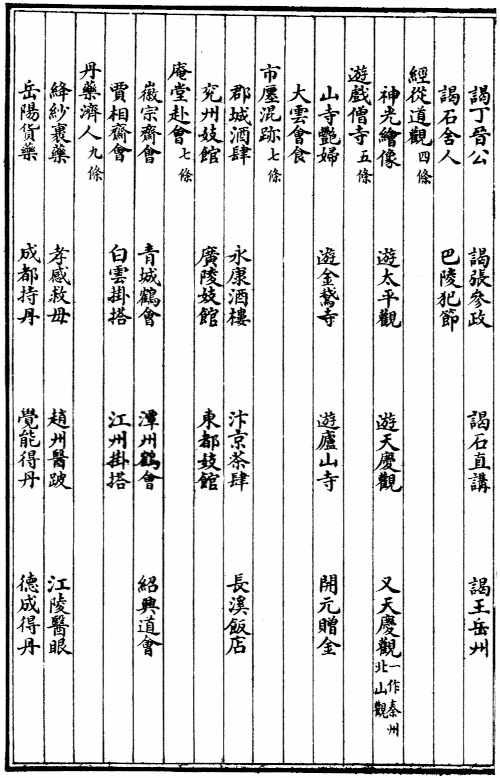 謁丁晉公 謁張參政 謁石直講 謁王岳州
謁石舍人 巴陵犯節
經從道觀四條
神光繪像 遊太平觀 遊天慶觀 又天慶觀一作秦州北山觀
遊戲僧寺五條
山寺艷婦 遊金鵞寺 遊廬山寺 開元贈金
大雲會食
市廛混跡七條
郡城酒肆 永康酒樓 汴京茶肆 長溪飯店
兖州妓館 廣陵妓館 東都妓館
庵堂赴會七條
徽宗齋會 青城鶴會 潭州鶴會 紹興道會
賈相齋會 白雲掛搭 江州掛搭
丹藥濟人九條
絳紗裹藥 孝感救母 趙州醫跛 江陵醫眼
岳陽貨藥 成都持丹 覺能得丹 德成得丹